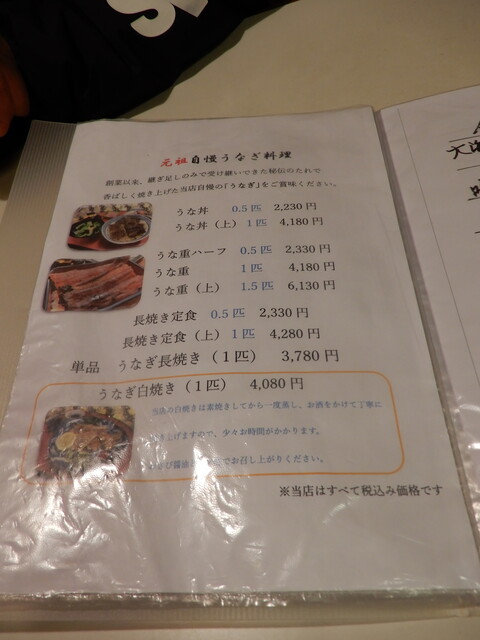 元祖自慢うなぎ料理
創業以来、継ぎ足しのみで受け継いできた秘伝のたれで
香ばしく焼き上げた当店自慢の「うなぎ」をご賞味ください。
うな丼 0.5 匹 2,230 円
うな丼（上） 1 匹 4,180 円
うな重ハーフ 0.5 匹 2,330 円
うな重 1 匹 4,180 円
うな重（上） 1.5 匹 6,130 円
長焼き定食 0.5 匹 2,330 円
長焼き定食（上） 1 匹 4,280 円
単品 うなぎ長焼き（１匹） 3,780 円
うなぎ白焼き（１匹） 4,080 円
当店の白焼きは素焼きしてから一度蒸し、お酒をかけて丁寧に
き上げますので、少々お時間がかかります。
醤油 でお召し上がりください。
※当店はすべて税込み価格です